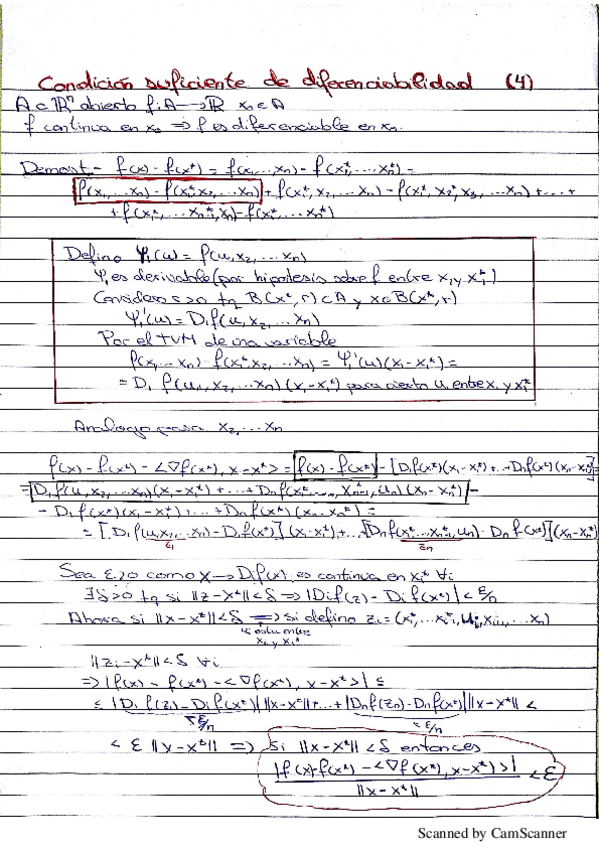 Condición suficiente de diferenciabilidad (4)
A ⊂ ℝⁿ abierto f: A → ℝ x₀ ∈ A
f continua en x₀ ⇒ f es diferenciable en x₀.
Demost - f(x) - f(x*) = f(x₁, ... xₙ) - f(x₁*, ... xₙ*) =
f(x₁, ... xₙ) - f(x₁*, x₂, ... xₙ) + f(x₁*, x₂, ... xₙ) - f(x₁*, x₂*, x₃, ... xₙ) + ... +
+ f(x₁*, ... xₙ₋₁*, xₙ) - f(x₁*, ... xₙ*)
Defino Ψ₁(u) = f(u, x₂, ... xₙ)
Ψ₁ es derivable (por hipótesis sobre f entre x₁ y x₁*)
Considero r>0 tq B(x*, r) ⊂ A y x ∈ B(x*, r)
Ψ₁'(u) = D₁f(u, x₂, ... xₙ)
Por el TVM de una variable
f(x₁, ... xₙ) - f(x₁*, x₂, ... xₙ) = Ψ₁'(u)(x₁ - x₁*) =
= D₁ f(u₁, x₂, ... xₙ)(x₁ - x₁*) para cierto u₁ entre x₁ y x₁*
Análogo para x₂, ... xₙ
f(x) - f(x*) - <∇f(x*), x - x*> = f(x) - f(x*) - [D₁f(x*)(x₁ - x₁*) + ... + Dₙf(x*)(xₙ - xₙ*)] =
= D₁f(u, x₂, ... xₙ)(x₁ - x₁*) + ... + Dₙf(x₁*, ..., xₙ₋₁*, uₙ)(xₙ - xₙ*) -
- D₁f(x*)(x₁ - x₁*) + ... + Dₙf(x*)(xₙ - xₙ*) =
= [D₁f(u, x₂, ... xₙ) - D₁f(x*)](x₁ - x₁*) + ... [Dₙf(x₁*, ... xₙ₋₁*, uₙ) - Dₙf(x*)](xₙ - xₙ*)
z₁ zₙ
Sea ε>0 como x → Dᵢf(x) es continua en xᵢ* ∀i
∃δ>0 tq si ||z - x*|| < δ ⇒ |Dᵢf(z) - Dᵢf(x*)| < ε/n
Ahora si ||x - x*|| < δ ⇒ si defino zᵢ = (x₁*, ... xᵢ*, uᵢ, xᵢ₊₁, ... xₙ)
uᵢ está entre
xᵢ y xᵢ*
||zᵢ - x*|| < δ ∀i
⇒ |f(x) - f(x*) - <∇f(x*), x - x*>| ≤
≤ |D₁f(z₁) - D₁f(x*)| ||x - x*|| + ... + |Dₙf(zₙ) - Dₙf(x*)| ||x - x*|| <
< ε/n < ε/n
< ε ||x - x*|| ⇒ Si ||x - x*|| < δ entonces
|f(x) - f(x*) - <∇f(x*), x - x*>| < ε
||x - x*||
Scanned by CamScanner